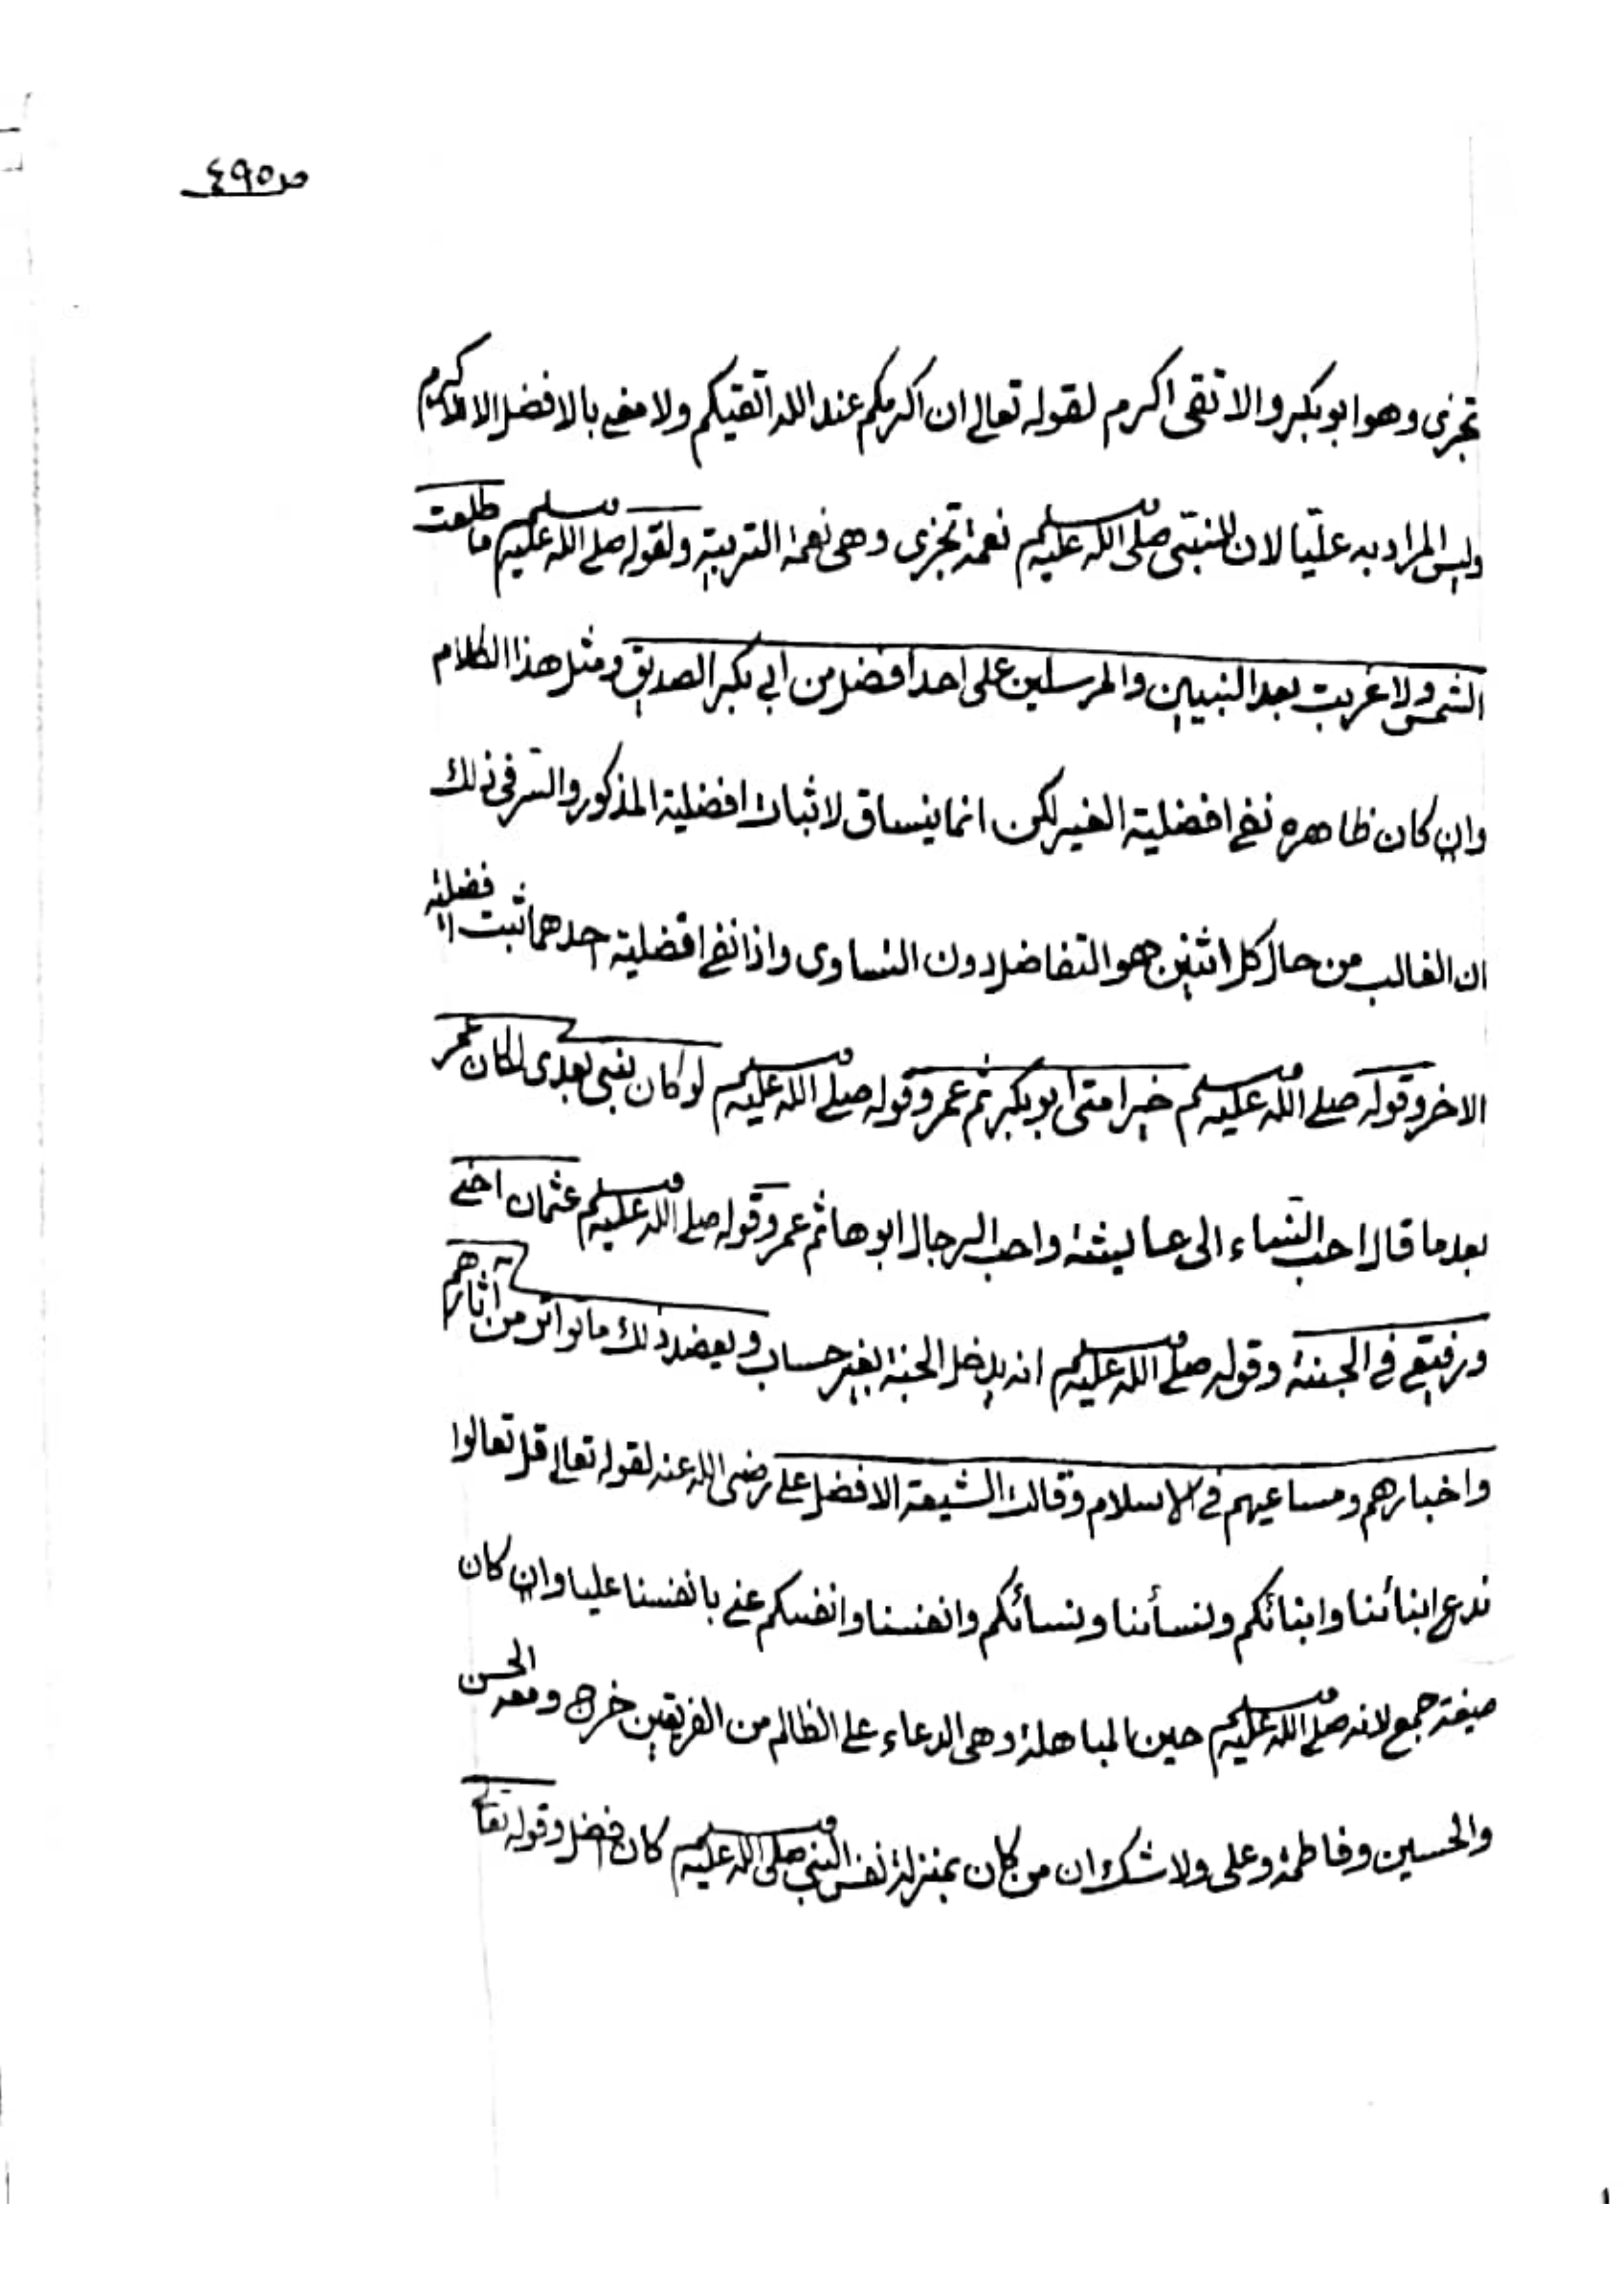 ص٤٩٥
تجزى وهو ابو بكر والاتقى اكرم لقوله تعالى ان اكرمكم عند الله اتقيكم ولا معنى بالافضل الا الاكرم
وليس المراد به عليّا لان للنبيّ صلى الله عليه وسلم نعمة تجزى وهى نعمة التربية ولقوله صلى الله عليه وسلم ما طلعت
الشمس ولا غربت بعد النبيين والمرسلين على احد افضل من ابي بكر الصديق ومثل هذا الكلام
وان كان ظاهره نفى افضلية الغير لكن انما ينساق لاثبات افضلية المذكور والسّر فى ذلك
ان الغالب من حال كل اثنين هو التفاضل دون التساوى واذا نفى افضلية احدهما ثبت افضلية
الاخر وقوله صلى الله عليه وسلم خير امتى ابو بكر ثم عمر وقوله صلى الله عليه وسلم لو كان نبى بعدى لكان عمر
بعد ما قال احب النّساء الى عايشة واحب الرجال ابوها ثم عمر وقوله صلى الله عليه وسلم عثمان اخى
ورفيقى فى الجنة وقوله صلى الله عليه وسلم انه يدخل الجنة بغير حساب ويعضد ذلك ما تواتر من آثارهم
واخبارهم ومساعيهم فى الاسلام وقالت الشيعة الافضل على رضى الله عنه لقوله تعالى قل تعالوا
ندع ابنائنا وابنائكم ونسأننا ونسائكم وانفسنا وانفسكم عنى بانفسنا عليا وان كان
صيغة جمع لانه صلى الله عليه وسلم حين المباهلة وهى الدعاء على الظالم من الفريقين خرج ومعه الحسن
والحسين وفاطمة وعلى ولا شك ان من كان بمنزلة نفس النبى صلى الله عليه وسلم كان افضل وقوله تعا